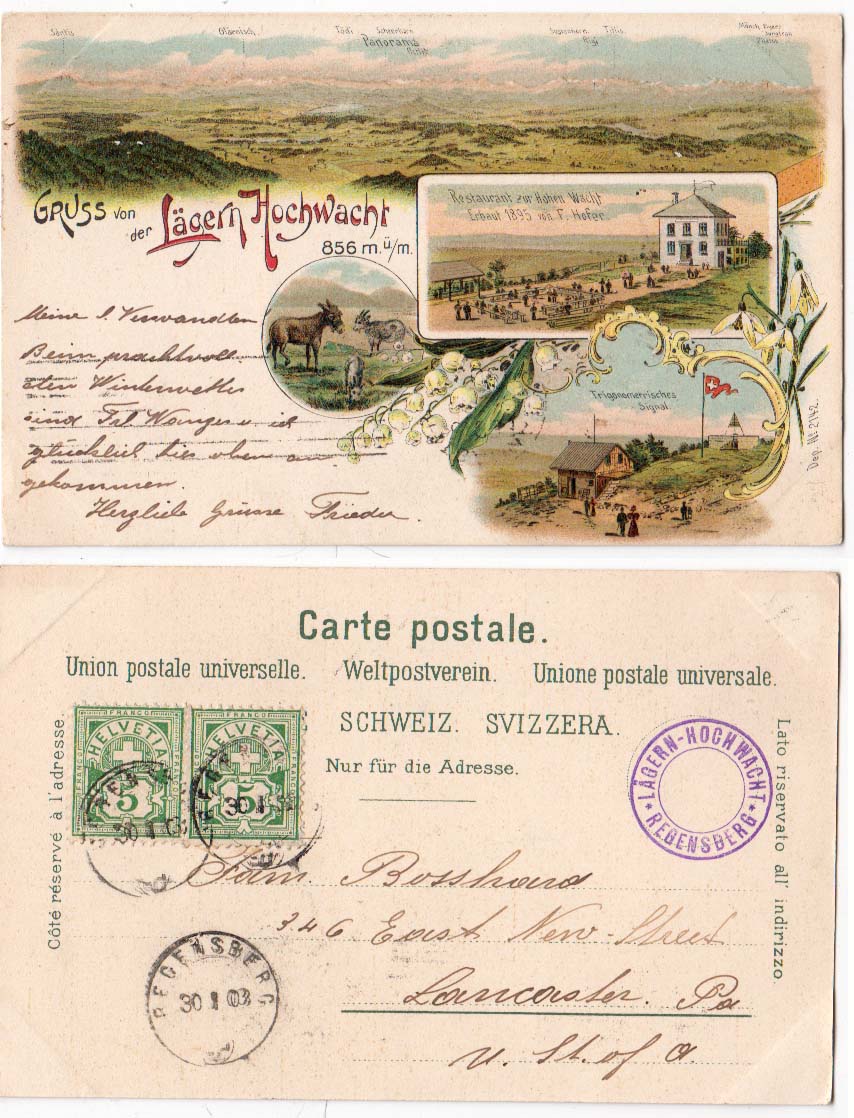 Säntis Glärnisch Tödi Scheerhorn Titlis
Panorama Rigi
GRUSS von der Lägern Hochwacht
856 m. ü/m.
Restaurant zur Hohen Wacht
Erbaut 1895 von F. Hofer.
Trigonometrisches
Signal.
Dep. № 2142.
Meine l. Verwandten
Beim prachtvoll-
sten Winterwetter
sind Frl Wanger u ich
glücklich hier oben an-
gekommen.
Herzliche Grüsse Frieder.
Carte postale.
Union postale universelle. Weltpostverein. Unione postale universale.
SCHWEIZ. SVIZZERA.
Nur für die Adresse.
Côté réservé à l'adresse.
Lato riservato all' indirizzo.
FRANCO
HELVETIA
5
FRANCO
HELVETIA
5
30 I 03
LÄGERN-HOCHWACHT
* REGENSBERG *
Fam. Bosshard
346 East New-Street
Lancaster. Pa
U. St. of A.
REGENSBERG
30 I 03